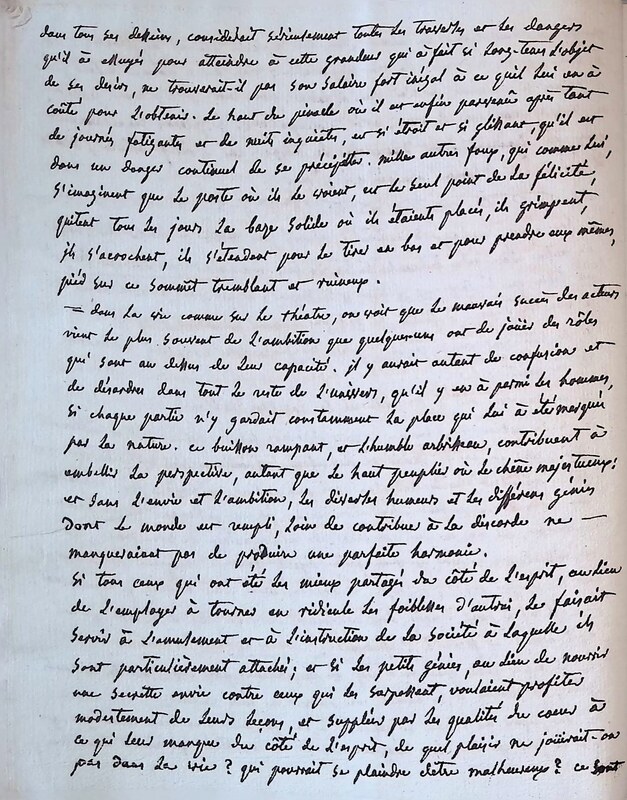 dans tous ses desseins, considerait sérieusement toutes les traverses et les dangers
qu'il à essuyés pour atteindre à cette grandeur qui à fait si long-tems l'objet
de ses desirs, ne trouverait-il pas son salaire fort inégal à ce qu'il lui en à
coûté pour l'obtenir. Le haut du pinacle où il est enfin parvenû après tant
de journés fatigantes et de nuits inquiètes, est si étroit et si glissant, qu'il est
dans un danger continuel de se précipiter. mille autres foux, qui comme lui,
s'imaginent que le poste où ils le voient, est le seul point de la félicité,
quitent tous les jours la baze solide où ils étaient placés, ils grimpent,
ils s'acrochent, ils s'étendent pour le tirer en bas et pour prendre eux mêmes,
piéd sur ce sommet tremblant et ruineux.
= dans la vie comme sur le théatre, on voit que le mauvais succès des acteurs
vient le plus souvent de l'ambition que quelques-uns ont de joüer des rôles
qui sont au dessus de leur capacité. il y aurait autant de confusion et
de désordre dans tout le reste de l'univers, qu'il y en à parmi les hommes,
si chaque partie n'y gardait constamment la place qui lui à été marquée
par la nature. ce buisson rampant, et l'humble arbrisseau, contribuent à
embellir la perspective, autant que le haut peuplier où le chêne majestueux:
et sans l'envie et l'ambition, les diverses humeurs et les différens génies
dont le monde est rempli, loin de contribuer à la discorde ne —
manqueraient pas de produire une parfaite harmonie.
Si tous ceux qui ont été les mieux partagés du côté de l'esprit, au lieu
de l'employer à tourner en ridicule les foiblesses d'autrui, le faisait
servir à l'amusement et à l'instruction de la société à laquelle ils
sont particulièrement attachés; et si les petits génies, au lieu de nourrir
une secrette envie contre ceux qui les surpassent, voulaient profiter
modestement de leurs leçons, et suppléer par les qualités du coeur à
ce qui leur manque du côté de l'esprit, de quel plaisir ne joüirait-on
pas dans la vie? qui pourrait se plaindre d'etre malheureux? ce sont